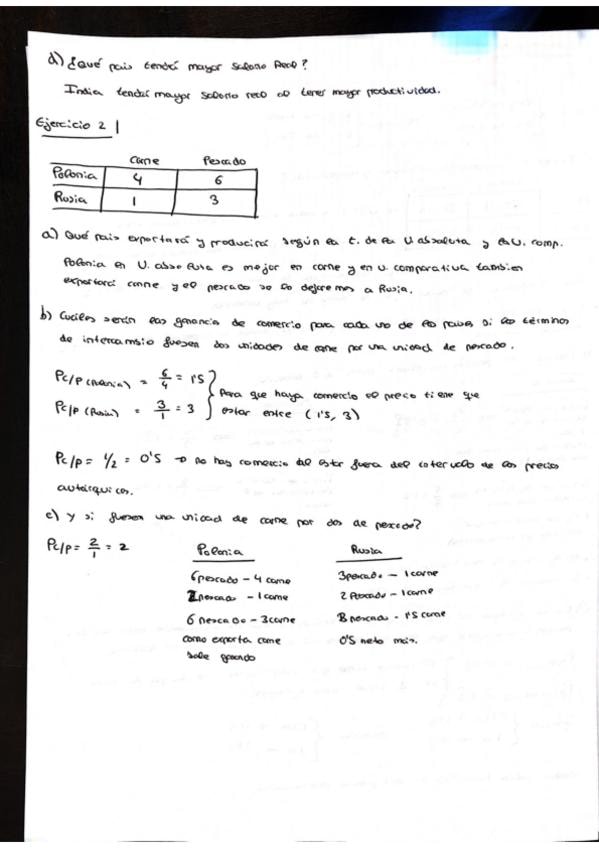 d) ¿Qué país tendrá mayor salario Real?
India tendrá mayor salario real al tener mayor productividad.
Ejercicio 2
Carne Pescado
Polonia 4 6
Rusia 1 3
a) Qué país exportará y producirá según la t. de la V absoluta y la V. comp.
Polonia en V. absoluta es mejor en carne y en v. comparativa tambien
exportará carne y el pescado se lo dejaremos a Rusia.
b) Cuáles serán las ganancia de comercio para cada uno de los países si los términos
de intercambio fuesen dos unidades de carne por una unidad de pescado.
Pc/p (Polonia) = 6/4 = 1'5
Pc/p (Rusia) = 3/1 = 3
Para que haya comercio el precio tiene que
estar entre (1'5, 3)
Pc/p = 1/2 = 0'5 → no hay comercio al estar fuera del intervalo de los precios
autárquicos.
c) Y si fuesen una unidad de carne por dos de pescado?
Pc/p = 2/1 = 2
Polonia
6 pescado - 4 carne
2 pescado - 1 carne
6 pescado - 3 carne
como exporta carne
sale ganando
Rusia
3 pescado - 1 carne
2 pescado - 1 carne
3 pescado - 1'5 carne
0'5 neto más.